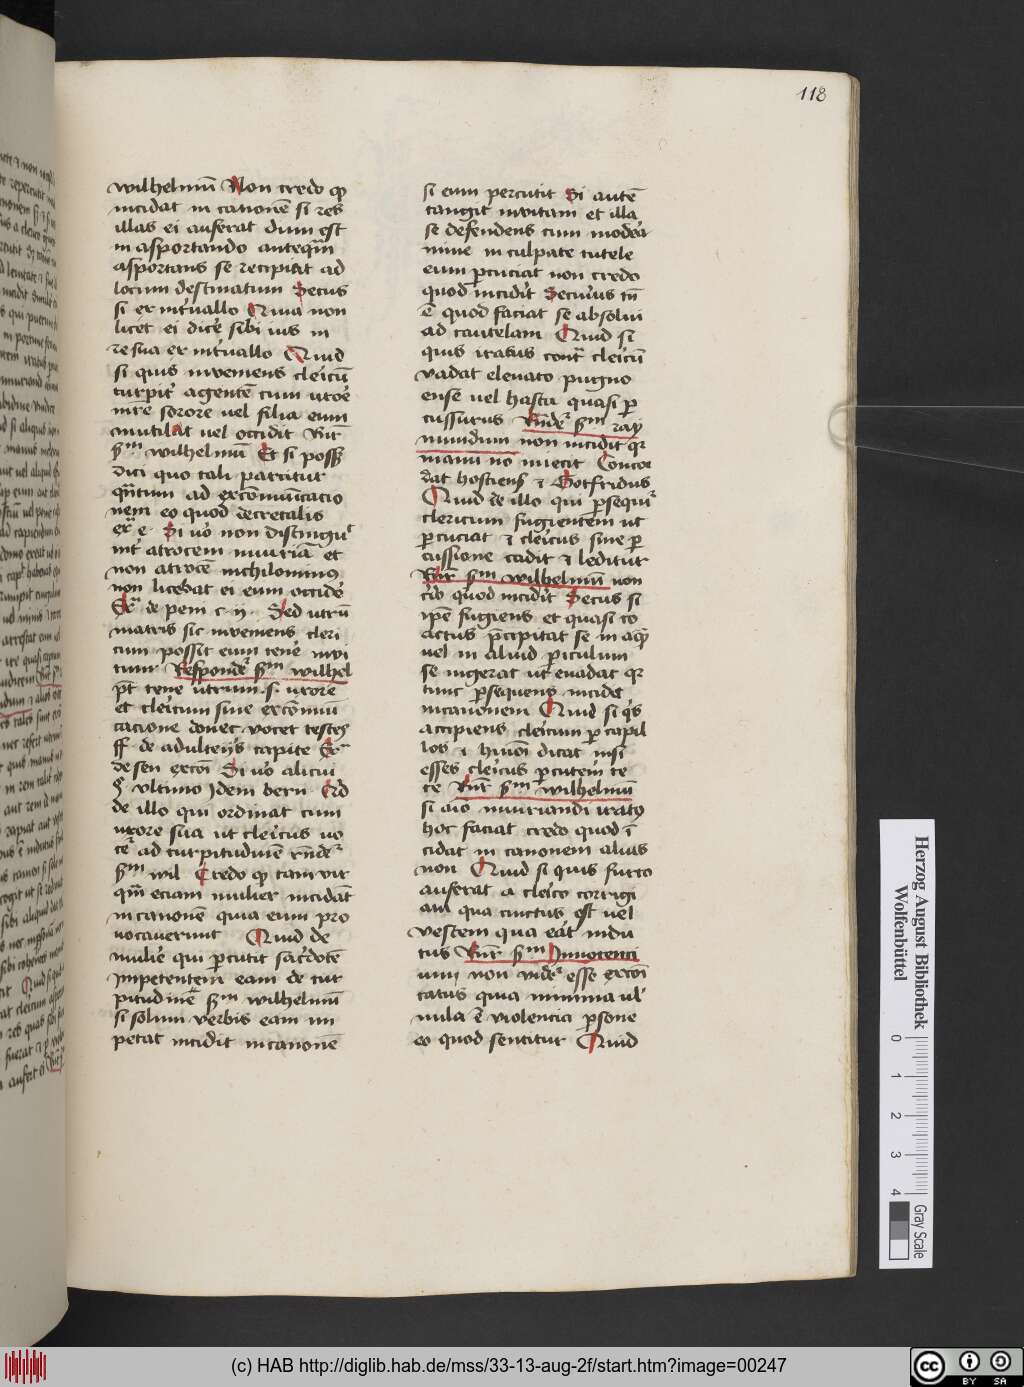 118
wilhelmū Non credo ꝙ
incidat in canonē si res
illas ei auferat dum est
in asportando anteqm̄
asportans se recipitat ad
locum destinatum Secus
si ex int'uallo Quia non
licet ei dicē sibi ius in
re sua ex int'uallo Quid
si quis inveniens cleicū
turpit' agentē cum uxoē
mr̄e sorore uel filia eum
mutilat uel occidit Rn̄t
scd'm wilhelmū Et si poss
dici quo tali parcitur
qn̄tum ad excōmunicacio
nem eo quod decretalis
exa e Si uō non distingut
int' atrocem iniuriā et
non atrocē nichilominus
non licebat ei eum occidē
Exa de peni c ij Sed utrū
matris sic inveniens cleri
cum possit eum tenē invi
tum Respondet scd'm wilhel
pt tenē utrum s uxorē
et cleicum sine excōmui
cacione donec vocet testes
ff de adulteijs capite Exa
de sen excōi Si uō alicui
§ vltimo Idem bern Ad
de illo qui ordinat cum
uxore sua ut cleicus uo
cet ad turpitudinē rn̄det
scd'm wil Credo ꝙ tam vir
qm̄ eciam mulier incidāt
in canonē quia eum pro
uocauerunt Quid de
muliē qui pcutit sacdotē
impetentem eam de tur
pitudinē scd'm wilhelmū
si solum verbis eam im
petat incidit in canonē
si eum percutit Si autē
tangit invitam et illa
se defendens cum modeā
mine inculpate tutele
eum pcuciat non credo
quod incidit Secuius tn̄
ē quod faciat se absolui
ad cautelam Quid si
quis iratus cont cleicū
vadat eleuato pugno
ense uel hasta quasi p
cussurus Rn̄det scd'm ray
mundum non incidit qr
manu nō iniecit Concor
dat hostiens ⁊ Gotfridus
Quid de illo qui psequit
clericum fugientem ut
pcuciat ⁊ cleicus sine p
cussione cadit ⁊ leditur
Rn̄t scd'm wilhelmū non
c'do quod incidit Secus si
ipe fugiens et quasi co
actus pcipitat se in aqm̄
uel in aliud piculum
se ingerat ut euadat qr
tunc psequens incidet
in canonem Quid si qis
accipiens cleicum p capil
los ⁊ hmōi dicat nisi
esses cleicus pcutem te
te Rn̄t scd'm wilhelmū
si aiō iniuriandi iratus
hoc faciat credo quod ī
cidat in canonem alias
non Quid si quis furto
auferat a cleico corrigi
am qua cinctus est uel
vestem qua eāt indu
tus Rn̄t scd'm Innocenci
um non videt esse excōi
catus quia minima ul'
nula ē violencia psone
eo quod sentitur Quid
Herzog August Bibliothek
Wolfenbüttel
0 1 2 3 4
Gray Scale
(c) HAB http://diglib.hab.de/mss/33-13-aug-2f/start.htm?image=00247
cc BY SA